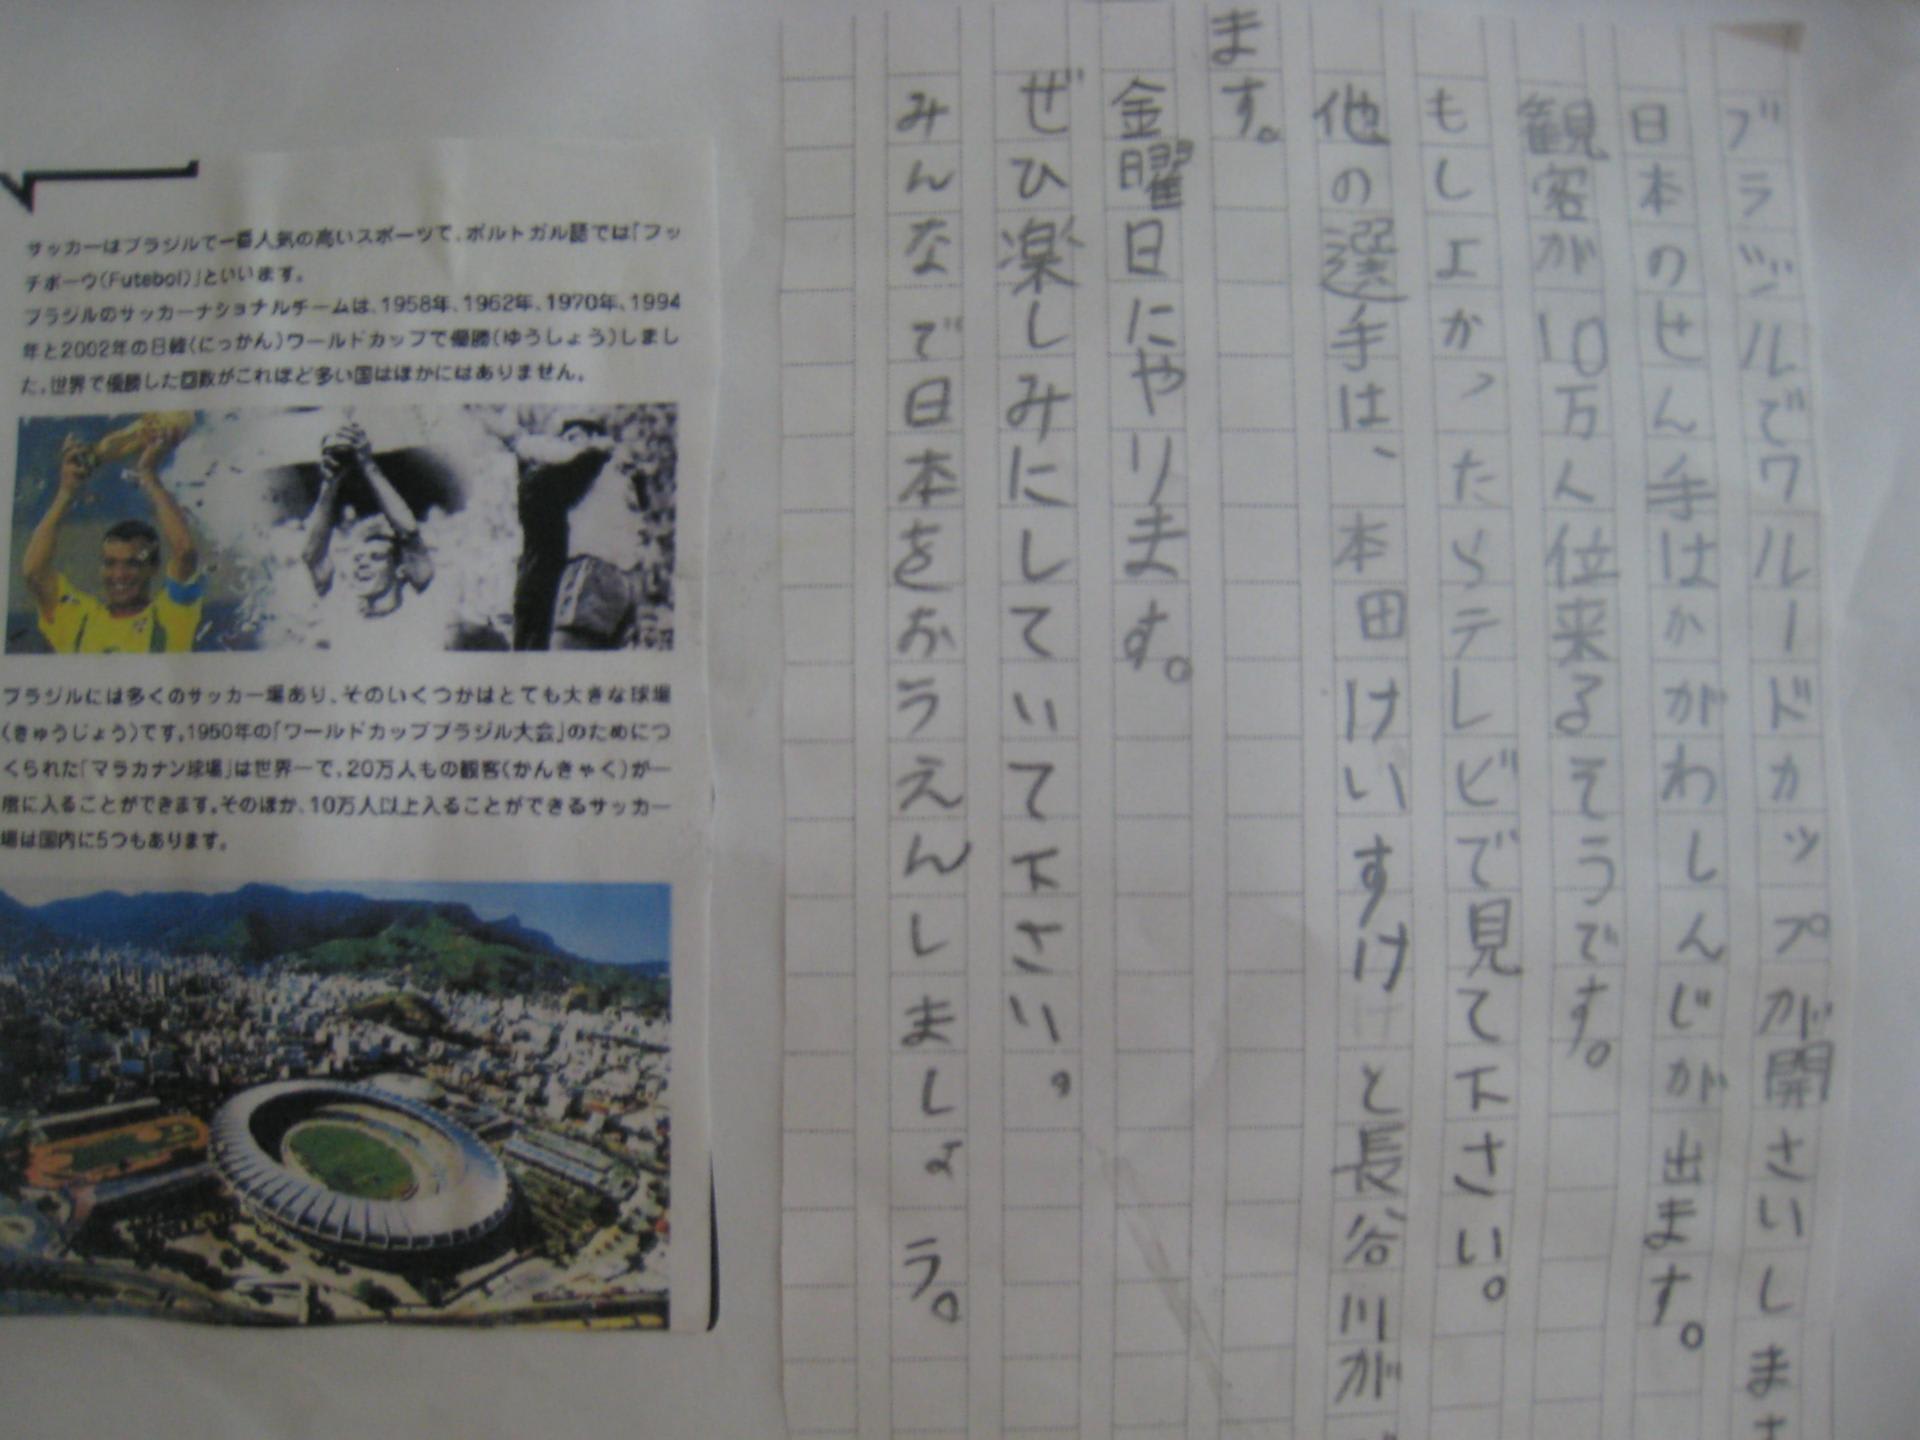 サッカーはブラジルで一番人気の高いスポーツで、ポルトガル語では「フッ
チボーウ(Futebol)」といいます。
ブラジルのサッカーナショナルチームは、1958年、1962年、1970年、1994
年と2002年の日韓(にっかん)ワールドカップで優勝(ゆうしょう)しまし
た。世界で優勝した回数がこれほど多い国はほかにはありません。
ブラジルには多くのサッカー場あり、そのいくつかはとても大きな球場
(きゅうじょう)です。1950年の「ワールドカップブラジル大会」のためにつ
くられた「マラカナン球場」は世界一で、20万人もの観客(かんきゃく)が一
度に入ることができます。そのほか、10万人以上入ることができるサッカー
場は国内に5つもあります。
ブラジルでワルードカップが開さいしま
日本のせん手はかがわしんじが出ます。
観客が10万人位来るそうです。
もしよかったらテレビで見て下さい。
他の選手は、本田けいすけと長谷川が
ます。
金曜日にやります。
ぜひ楽しみにしていて下さい。
みんなで日本をおうえんしましょう。